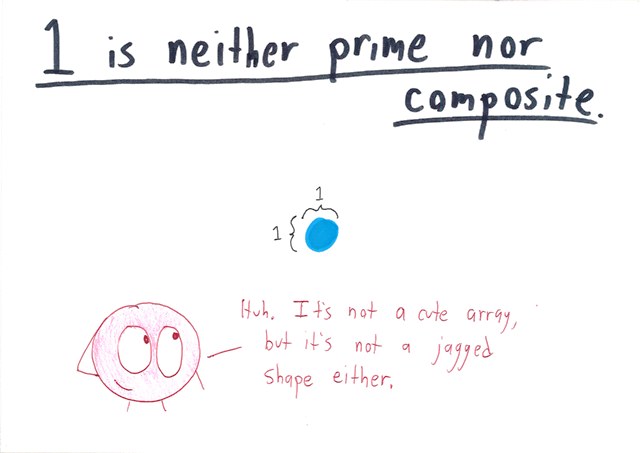 1 is neither prime nor
composite.
1
1
Huh. It's not a cute array,
but it's not a jagged
shape either.